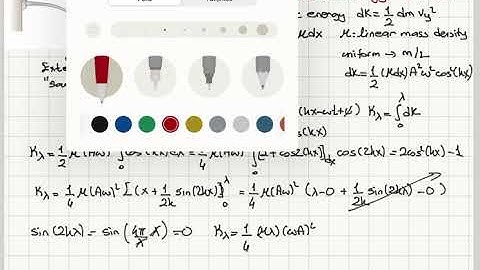 energy dK = 1/2 dm Vy²
μdx μ = linear mass density
uniform → m/L
dK = 1/2 (μdx) A²ω² cos²(kx)
(kx-ωt+φ) Kλ = ∫₀^λ dK
(kx)
Kλ = 1/2 μ(Aω)² ∫₀^λ cos²(kx) = 1/4 μ(Aω)² ∫₀^λ [1 + cos2(kx)] dx cos(2kx) = 2cos²(kx) - 1
Kλ = 1/4 μ(Aω)² [(x + 1/2k sin(2kx)]₀^λ = 1/4 μ(Aω)² (λ - 0 + 1/2k sin(2kλ) - 0)
sin(2kx) = sin(4π/λ λ) = 0 Kλ = 1/4 (μλ)(ωA)²